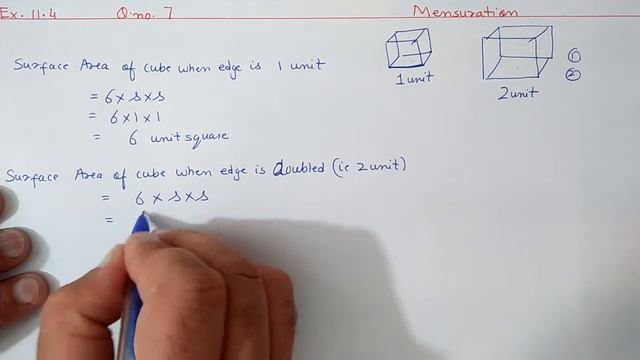 Ex. 11.4 Q.no. 7 Mensuration
1 unit
2 unit
①
②
Surface Area of cube when edge is 1 unit
= 6 × s × s
= 6 × 1 × 1
= 6 unit square
Surface Area of cube when edge is doubled (ie 2 unit)
= 6 × s × s
=